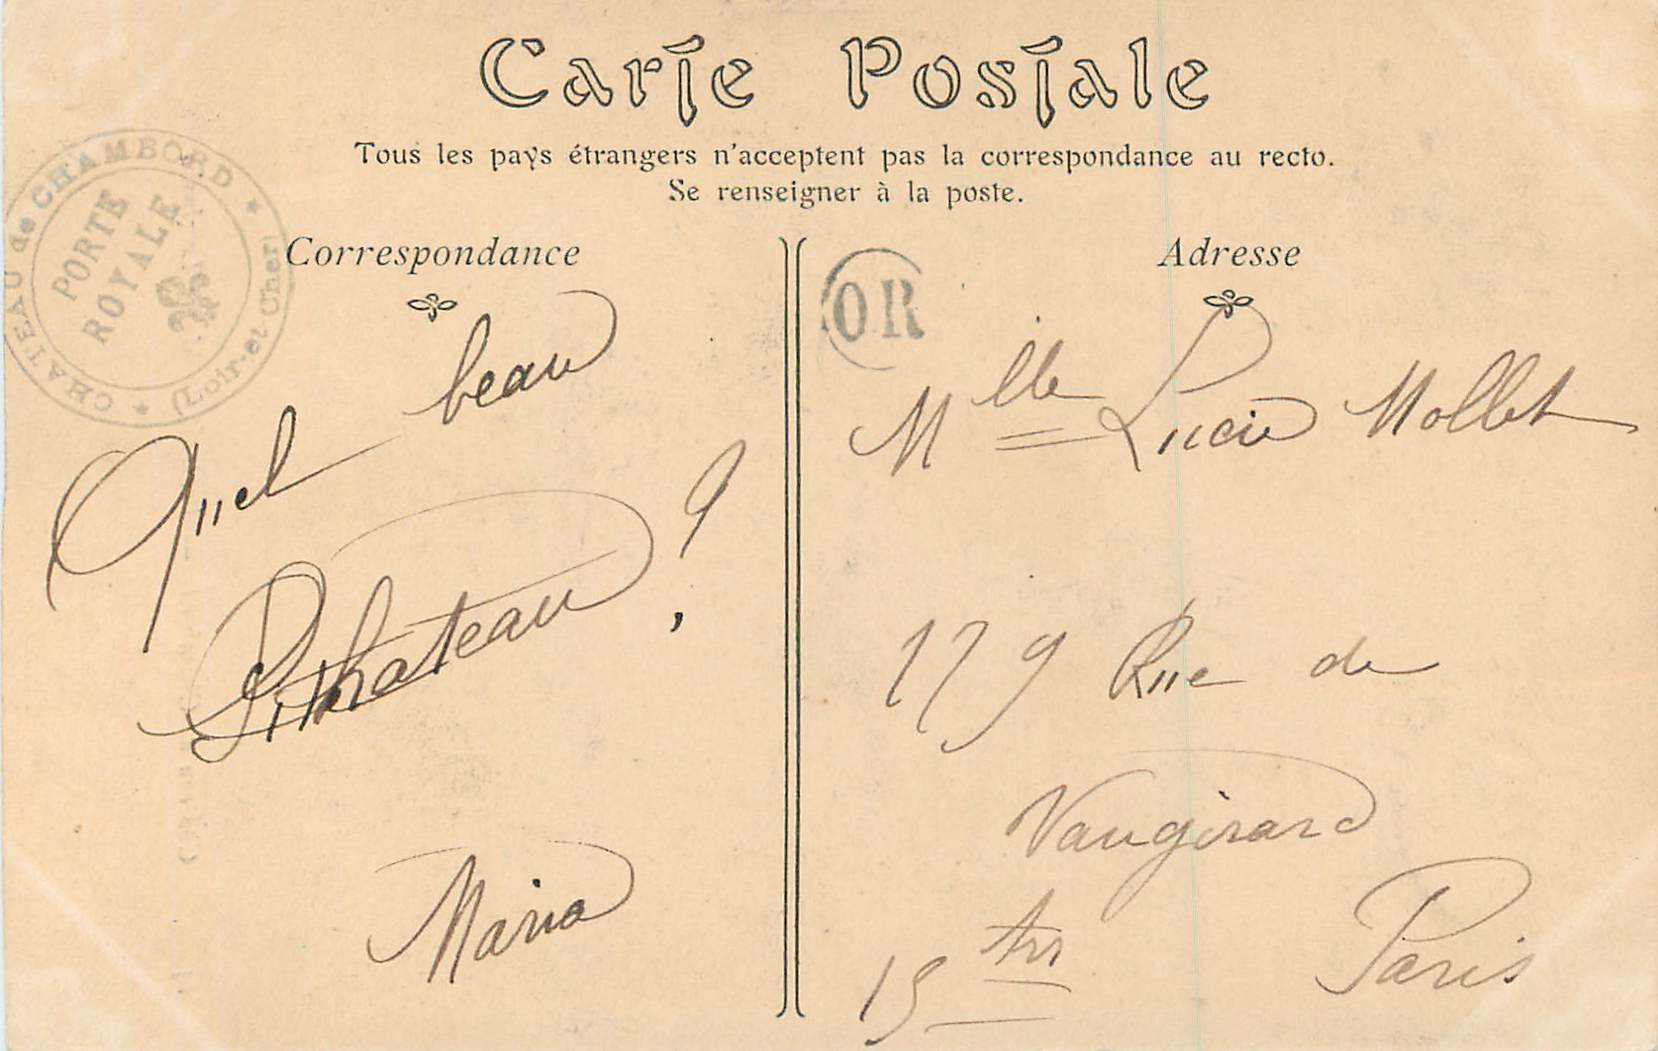 Carte Postale
Tous les pays étrangers n'acceptent pas la correspondance au recto.
Se renseigner à la poste.
CHATEAU de CHAMBORD
★ (Loir-et-Cher) ★
PORTE
ROYALE
Correspondance
Quel beau
Château ?
Maria
Adresse
OR
Mlle Lucie Mollet
179 Rue de
Vaugirard
Paris
15 Arr